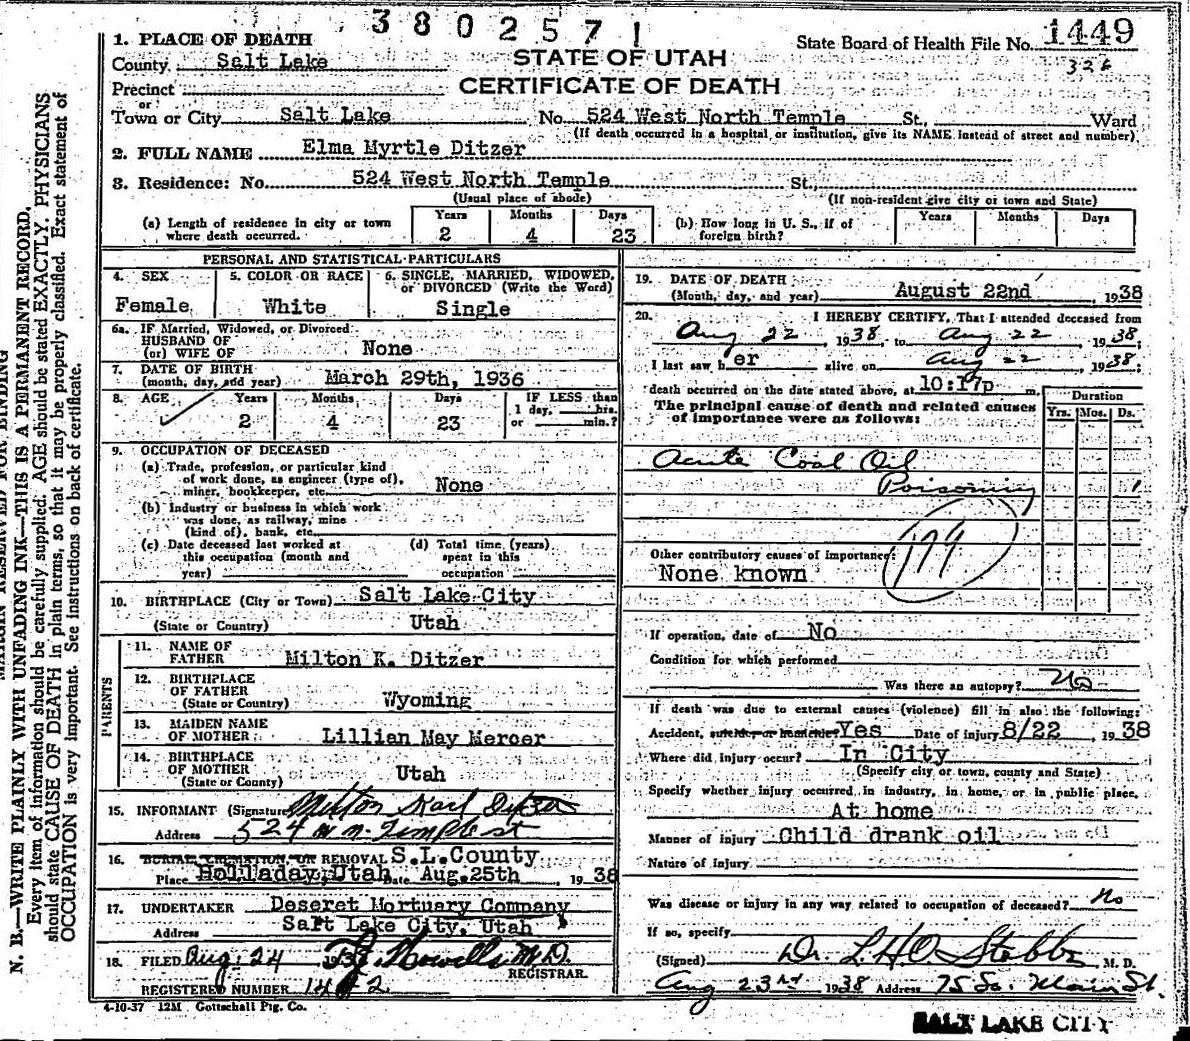 3802571
1. PLACE OF DEATH
STATE OF UTAH
CERTIFICATE OF DEATH
State Board of Health File No. 1449
326
County Salt Lake
Precinct
or
Town or City Salt Lake No. 524 West North Temple St., Ward
(If death occurred in a hospital or institution, give its NAME instead of street and number)
2. FULL NAME Elma Myrtle Ditzer
3. Residence: No. 524 West North Temple St.,
(Usual place of abode) (If non-resident give city or town and State)
(a) Length of residence in city or town where death occurred. Years 2 Months 4 Days 23
(b) How long in U. S., if of foreign birth? Years Months Days
PERSONAL AND STATISTICAL PARTICULARS
4. SEX Female
5. COLOR OR RACE White
6. SINGLE, MARRIED, WIDOWED, or DIVORCED (Write the Word) Single
6a. IF Married, Widowed, or Divorced
HUSBAND OF
(or) WIFE OF None
7. DATE OF BIRTH
(month, day, and year) March 29th, 1936
8. AGE Years 2 Months 4 Days 23 IF LESS than 1 day, hrs. or min.?
9. OCCUPATION OF DECEASED
(a) Trade, profession, or particular kind
of work done, as engineer (type of),
miner, bookkeeper, etc. None
(b) Industry or business in which work
was done, as railway, mine
(kind of), bank, etc.
(c) Date deceased last worked at
this occupation (month and
year)
(d) Total time (years)
spent in this
occupation
10. BIRTHPLACE (City or Town) Salt Lake City
(State or Country) Utah
PARENTS
11. NAME OF FATHER Milton K. Ditzer
12. BIRTHPLACE OF FATHER (State or Country) Wyoming
13. MAIDEN NAME OF MOTHER Lillian May Mercer
14. BIRTHPLACE OF MOTHER (State or County) Utah
15. INFORMANT (Signature) Milton Karl Ditzer
Address 524 W N. Temple st
16. BURIAL, CREMATION, OR REMOVAL S.L.County
Place Holladay, Utah Date Aug.25th, 1938
17. UNDERTAKER Deseret Mortuary Company
Address Salt Lake City, Utah
18. FILED Aug. 24 193 Howells M.D.
REGISTRAR.
REGISTERED NUMBER
4-10-37 12M Gottschall Ptg. Co.
19. DATE OF DEATH
(Month, day, and year) August 22nd, 1938
20. I HEREBY CERTIFY, That I attended deceased from
Aug 22, 1938, to Aug 22, 1938;
I last saw her alive on Aug 22, 1938;
death occurred on the date stated above, at 10:17p m.
The principal cause of death and related causes
of importance were as follows:
Duration
Yrs. Mos. Ds.
Acute Coal Oil
Poisoning 1
179
Other contributory causes of importance:
None known
If operation, date of No
Condition for which performed
Was there an autopsy? No
If death was due to external causes (violence) fill in also the following:
Accident, suicide, or homicide? Yes Date of injury 8/22, 1938
Where did injury occur? In City
(Specify city or town, county and State)
Specify whether injury occurred in industry, in home, or in public place,
At home
Manner of injury Child drank oil
Nature of Injury
Was disease or injury in any way related to occupation of deceased? No
If so, specify
(Signed) Dr. L.H.O. Stobbe, M. D.
Aug 23rd 1938 Address 75 So. Main St.
SALT LAKE CITY
MARGIN RESERVED FOR BINDING
N. B.—WRITE PLAINLY WITH UNFADING INK—THIS IS A PERMANENT RECORD.
Every item of information should be carefully supplied. AGE should be stated EXACTLY. PHYSICIANS
should state CAUSE OF DEATH in plain terms, so that it may be properly classified. Exact statement of
OCCUPATION is very important. See instructions on back of certificate.